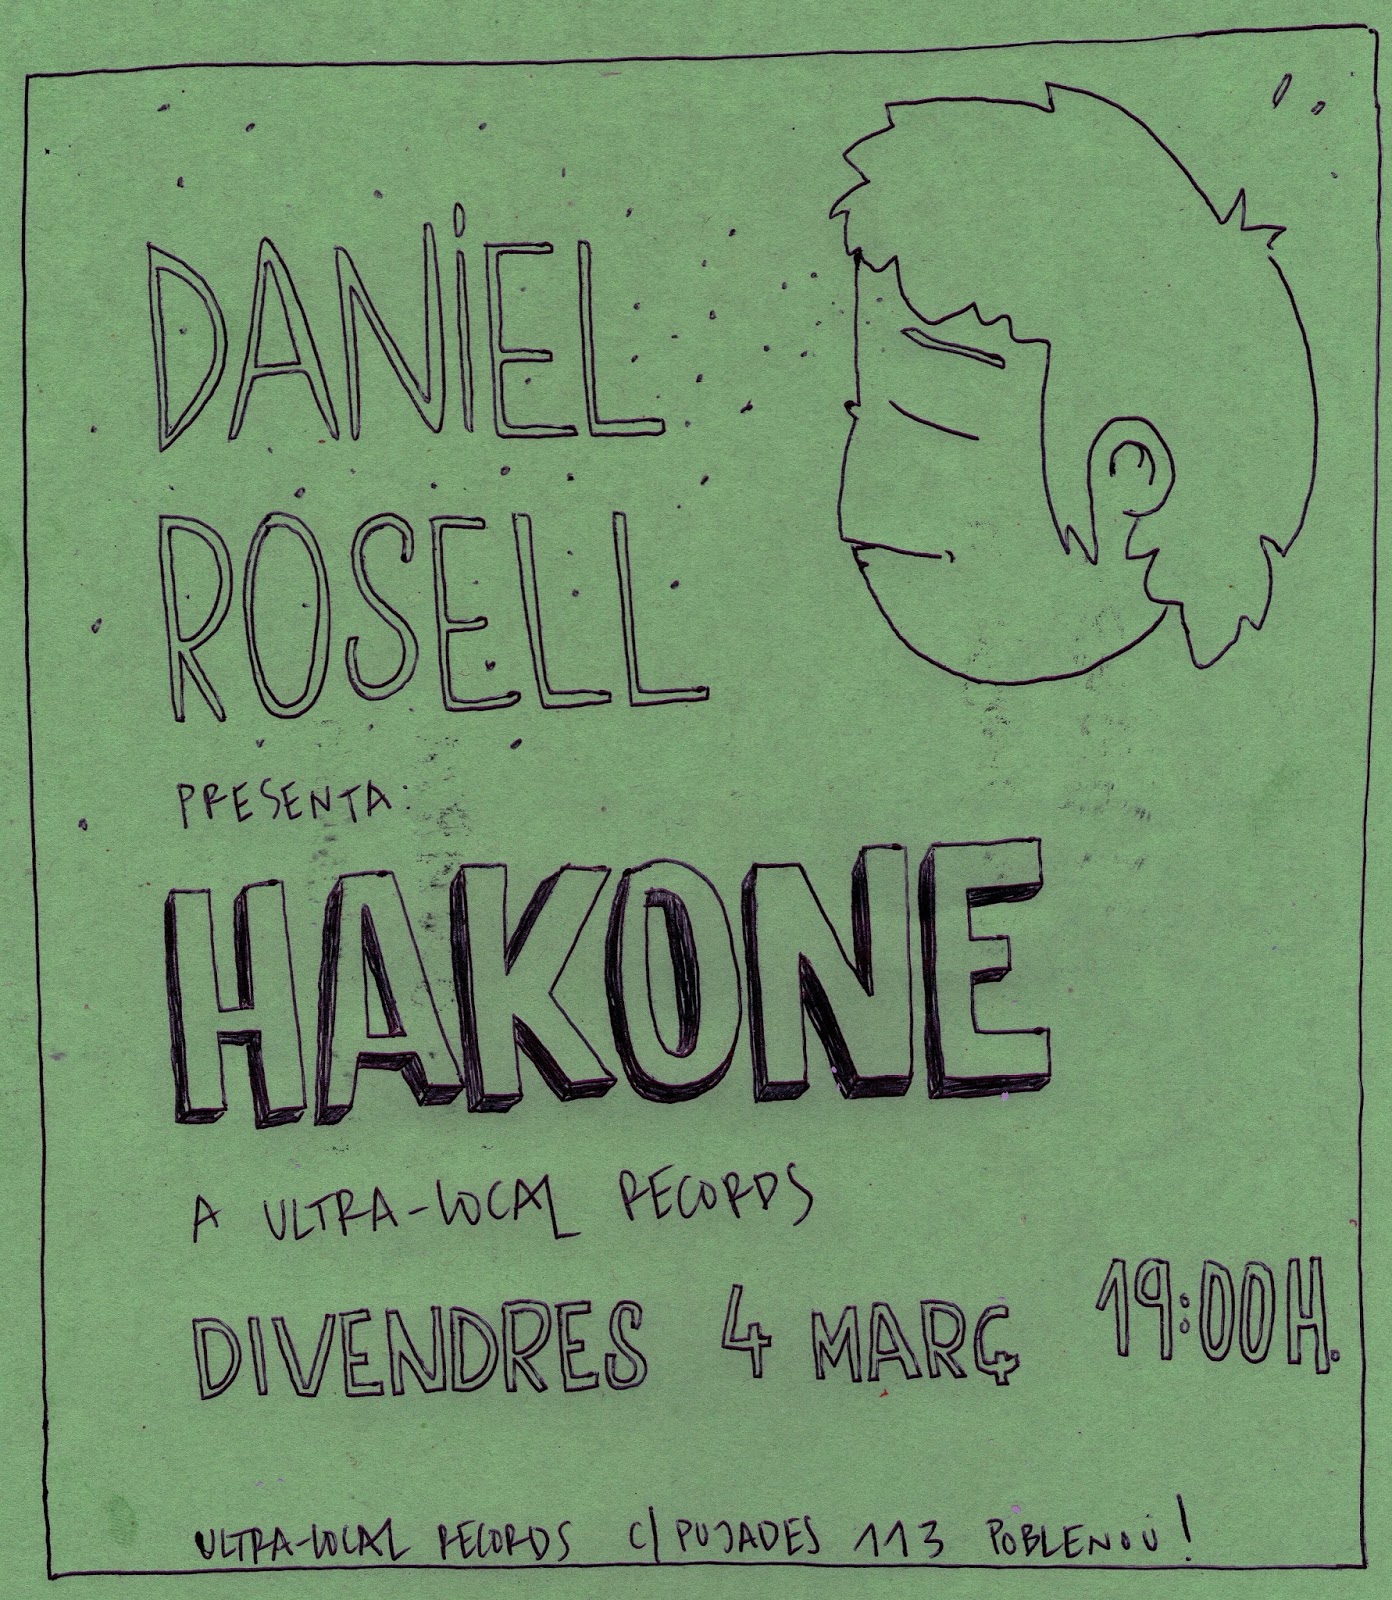 DANiEL
ROSELL
PRESENTA:
HAKONE
A ULTRA-LOCAL RECORDS
DIVENDRES 4 MARÇ 19:00H.
ULTRA-LOCAL RECORDS C/PUJADES 113 POBLENOU!